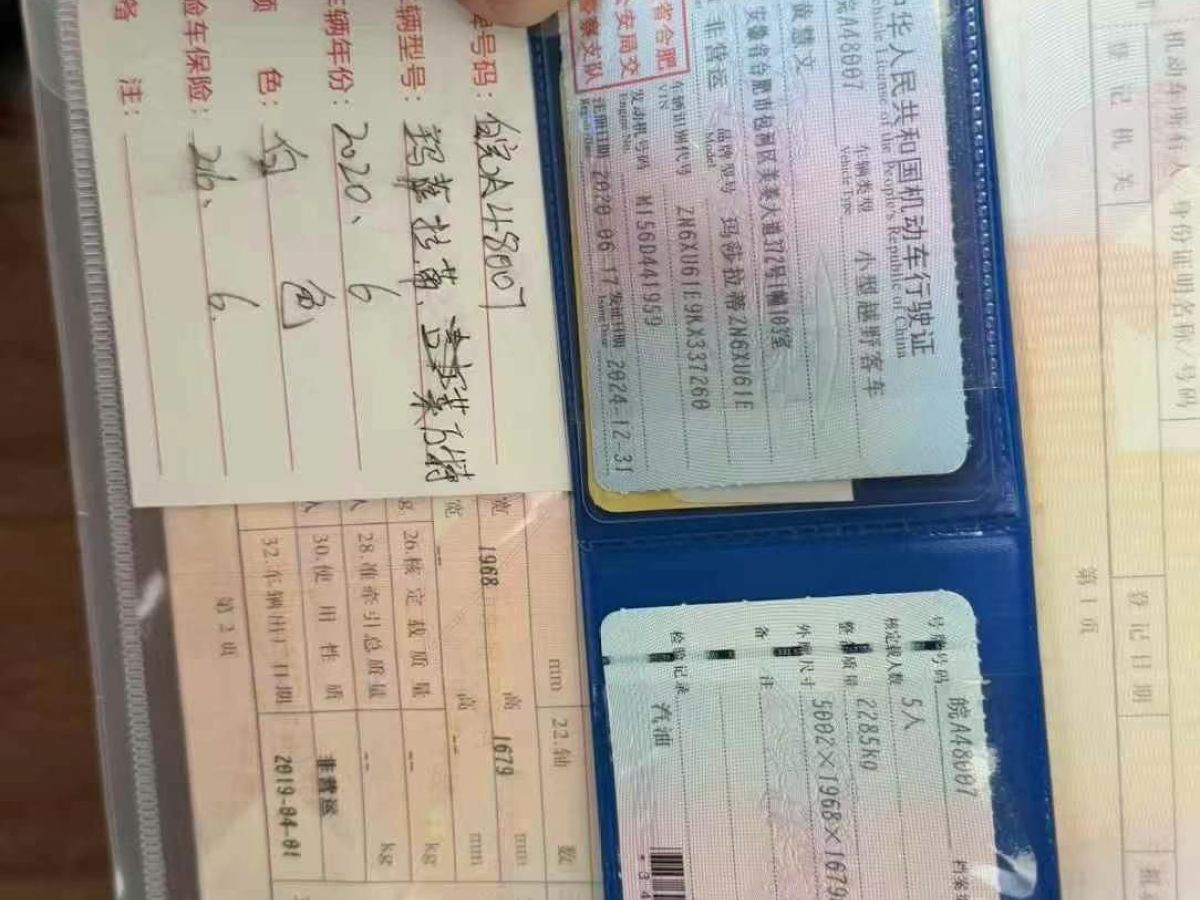 中华人民共和国机动车行驶证
Vehicle License of the People's Republic of China
皖A48007 车辆类型 小型越野客车
Vehicle Type
黄慧文
安徽省合肥市包河区美菱大道372号1幢103室
非营运 品牌型号 玛莎拉蒂ZN6XU61E
Model
省合肥
公安局交
警察支队
车辆识别代号 ZN6XU61E9KX337260
VIN
发动机号码 M156D441959
Engine No.
注册日期 2020-06-17 发证日期 2024-12-31
Register Date Issue Date
号牌号码 皖A48007 档案编
核定载人数 5人
整备质量 2285kg
外廓尺寸 5002×1968×1679
备 注
检验记录 汽油
*34
号码: 皖A48007
辆型号: 玛莎拉蒂、莱万特
车辆年份: 2020、6
颜 色: 白 色
险车保险: 26、6.
备 注:
宽 1968 mm 高 1679 mm
宽 -- 高 -- mm
22.轴 数
26.核定载质量 -- kg
28.准牵引总质量 -- kg
30.使用性质 非营运
32.车辆出厂日期 2019-04-01
第2页
机动车所有人/身份证明名称/号码
登记机关
登记日期
第1页